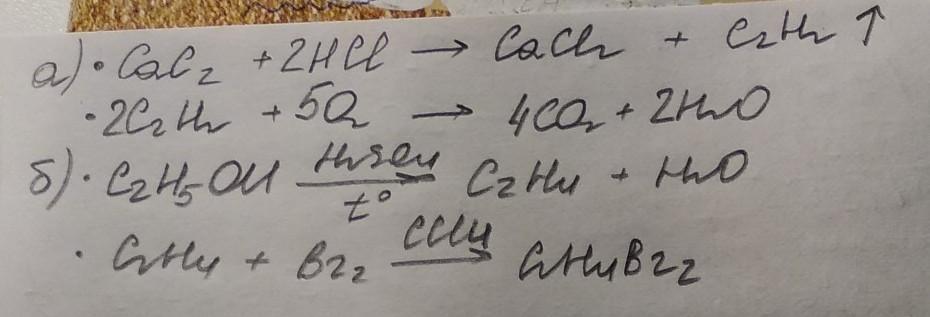 а) · CaC₂ + 2HCl → CaCl₂ + C₂H₂ ↑
· 2C₂H₂ + 5O₂ → 4CO₂ + 2H₂O
б) · C₂H₅OH H₂SO₄ t° → C₂H₄ + H₂O
· C₂H₄ + Br₂ CCl₄ → C₂H₄Br₂